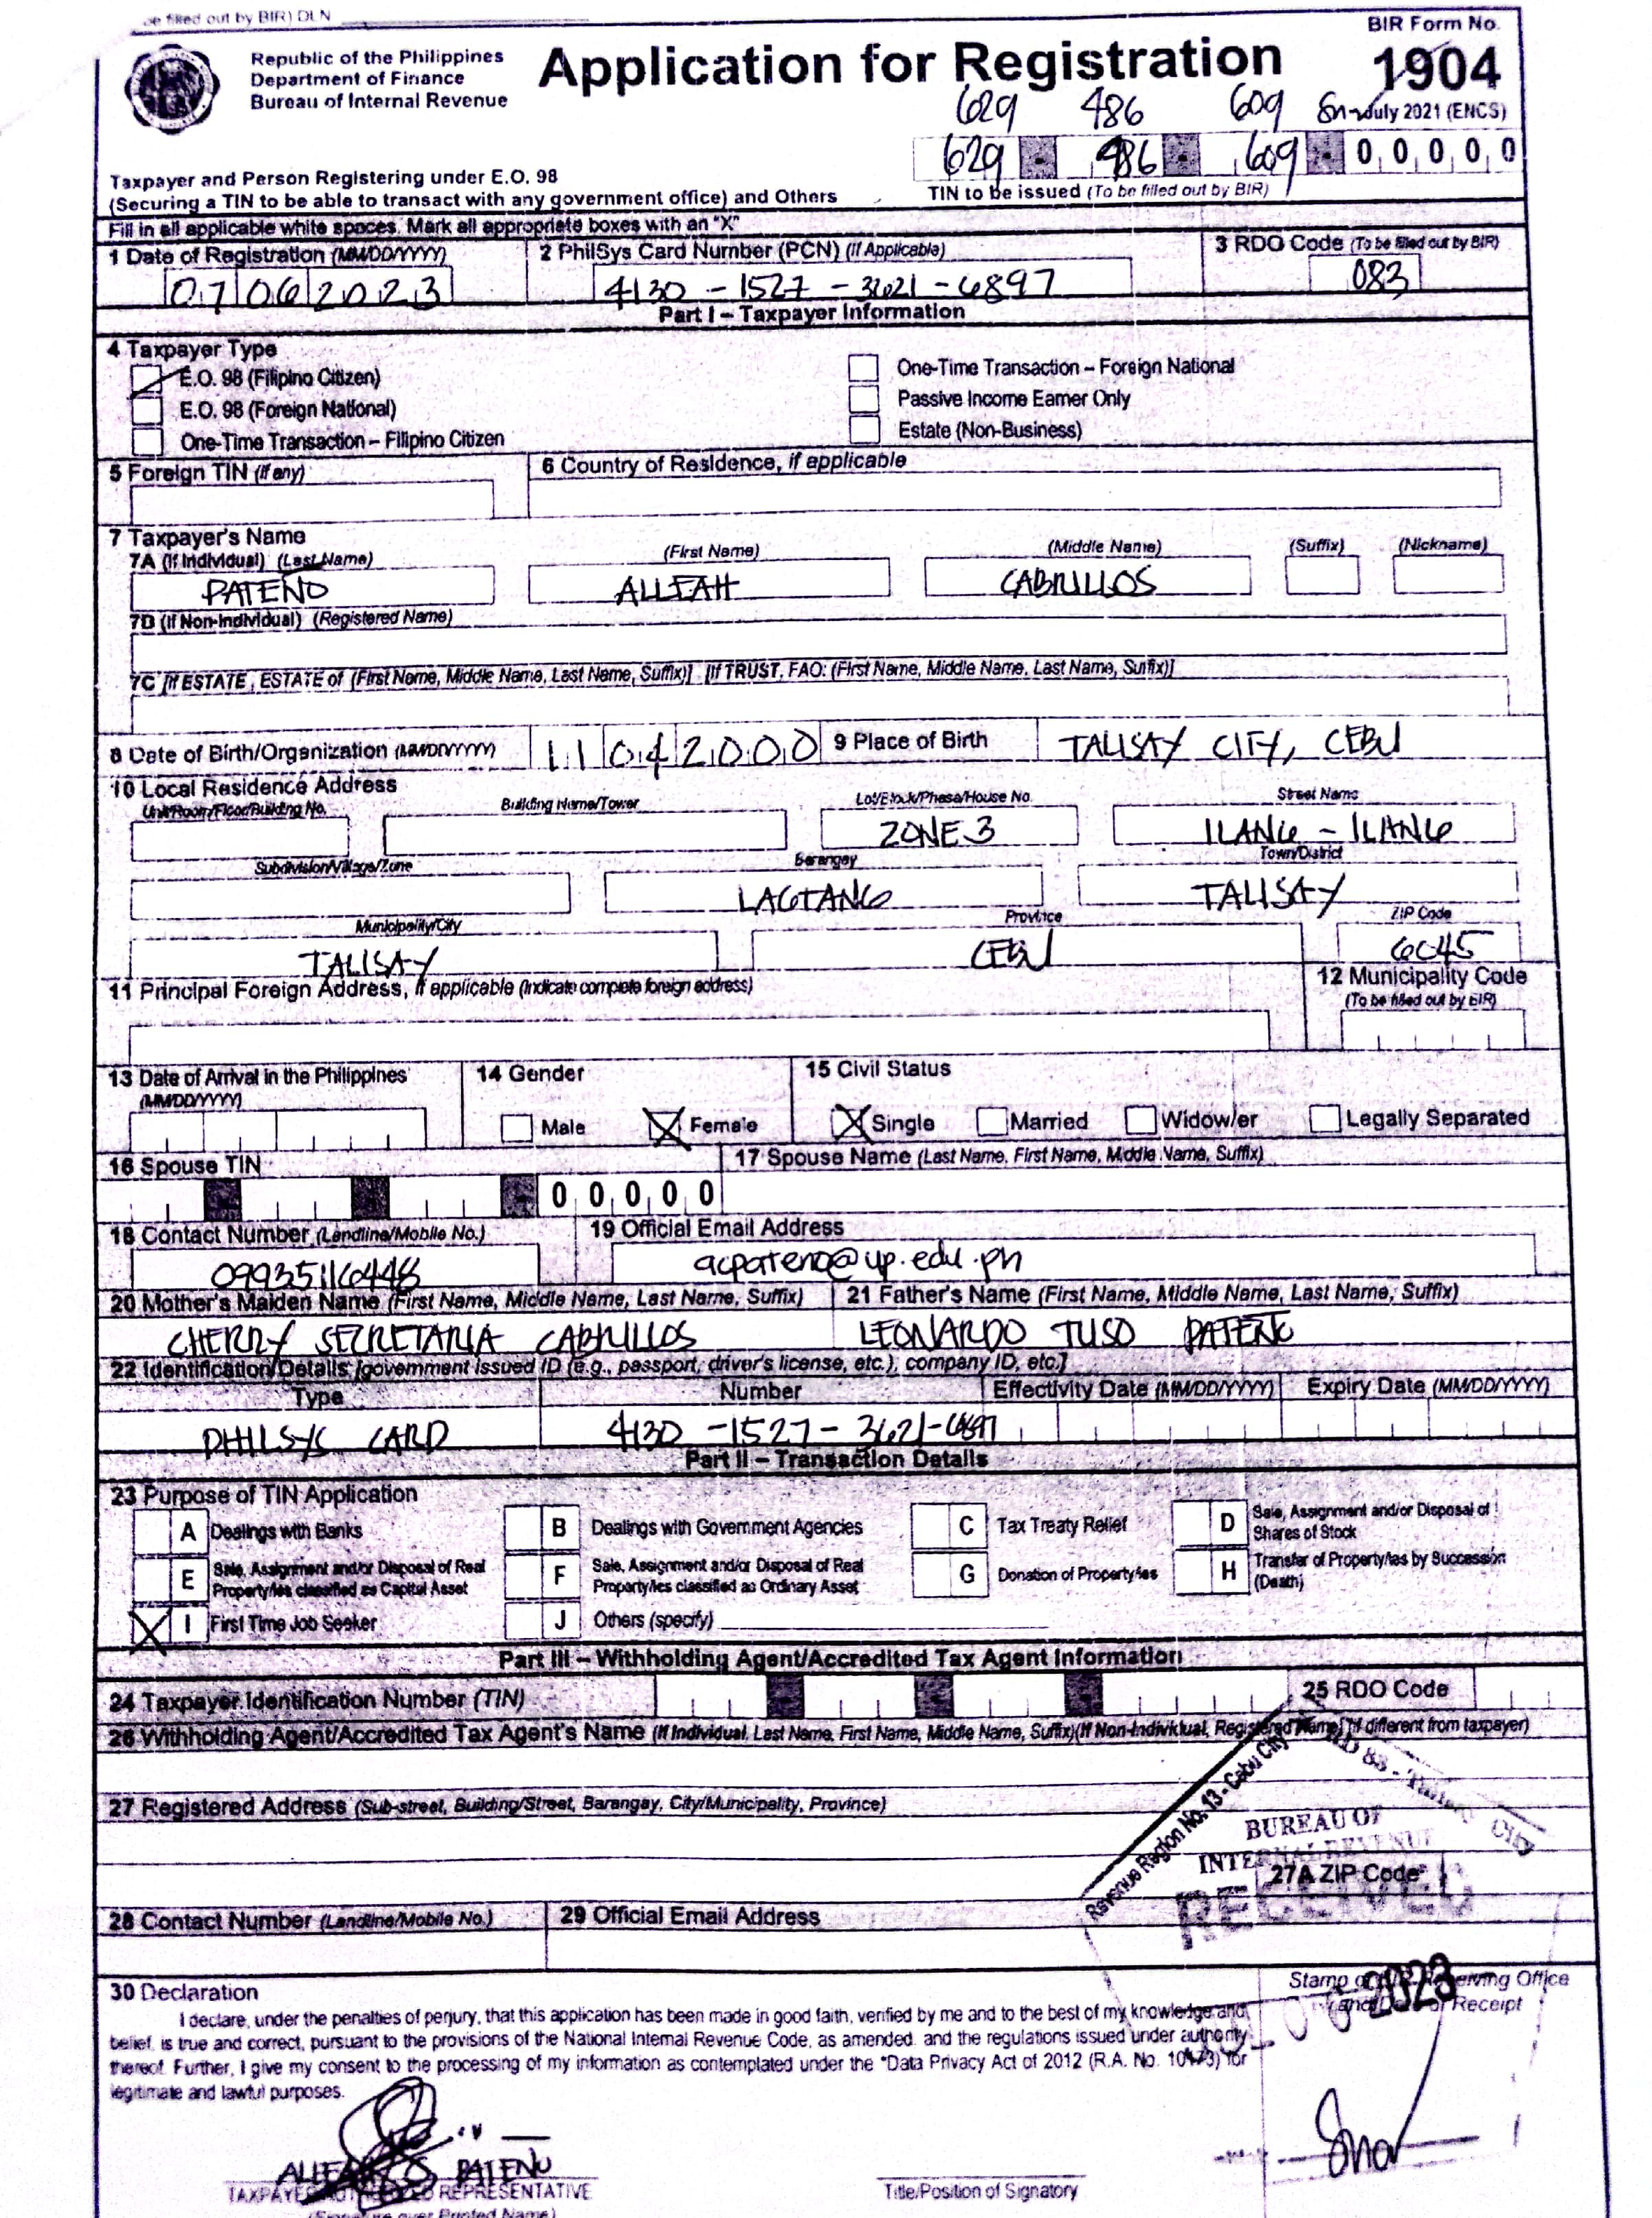 be filled out by BIR) DLN
BIR Form No.
Republic of the Philippines
Department of Finance
Bureau of Internal Revenue
Application for Registration
1904
July 2021 (ENCS)
629 486 609
629 - 486 - 609 - 0 0 0 0 0
Taxpayer and Person Registering under E.O. 98
(Securing a TIN to be able to transact with any government office) and Others
TIN to be issued (To be filled out by BIR)
Fill in all applicable white spaces. Mark all appropriate boxes with an "X"
1 Date of Registration (MM/DD/YYYY)
2 PhilSys Card Number (PCN) (If Applicable)
3 RDO Code (To be filled out by BIR)
07062023
4130 - 1527 - 3621 - 6897
083
Part I – Taxpayer Information
4 Taxpayer Type
E.O. 98 (Filipino Citizen)
One-Time Transaction – Foreign National
E.O. 98 (Foreign National)
Passive Income Earner Only
One-Time Transaction – Filipino Citizen
Estate (Non-Business)
5 Foreign TIN (if any)
6 Country of Residence, if applicable
7 Taxpayer's Name
7A (If Individual) (Last Name) (First Name) (Middle Name) (Suffix) (Nickname)
PATENO ALLEAH CABRILLOS
7B (If Non-Individual) (Registered Name)
7C [If ESTATE, ESTATE of (First Name, Middle Name, Last Name, Suffix)] [If TRUST, FAO: (First Name, Middle Name, Last Name, Suffix)]
8 Date of Birth/Organization (MM/DD/YYYY) 11042000 9 Place of Birth TALISAY CITY, CEBU
10 Local Residence Address
Unit/Room/Floor/Building No. Building Name/Tower Lot/Block/Phase/House No. Street Name
ZONE 3 ILANG - ILANG
Subdivision/Village/Zone Barangay Town/District
LAGTANG TALISAY
Municipality/City Province ZIP Code
TALISAY CEBU 6045
11 Principal Foreign Address, if applicable (Indicate complete foreign address)
12 Municipality Code
(To be filled out by BIR)
13 Date of Arrival in the Philippines
(MM/DD/YYYY)
14 Gender
15 Civil Status
Male X Female X Single Married Widow/er Legally Separated
16 Spouse TIN
17 Spouse Name (Last Name, First Name, Middle Name, Suffix)
0 0 0 0 0
18 Contact Number (Landline/Mobile No.)
19 Official Email Address
09935116448
acpateno@up.edu.ph
20 Mother's Maiden Name (First Name, Middle Name, Last Name, Suffix)
21 Father's Name (First Name, Middle Name, Last Name, Suffix)
CHERRY SECRETARIA CABRILLOS
LEONARDO TUSO PATENO
22 Identification Details [government issued ID (e.g., passport, driver's license, etc.), company ID, etc.]
Type Number Effectivity Date (MM/DD/YYYY) Expiry Date (MM/DD/YYYY)
PHILSYS CARD 4130 - 1527 - 3621 - 6897
Part II – Transaction Details
23 Purpose of TIN Application
A Dealings with Banks
B Dealings with Government Agencies
C Tax Treaty Relief
D Sale, Assignment and/or Disposal of Shares of Stock
E Sale, Assignment and/or Disposal of Real Property/ies classified as Capital Asset
F Sale, Assignment and/or Disposal of Real Property/ies classified as Ordinary Asset
G Donation of Property/ies
H Transfer of Property/ies by Succession (Death)
X I First Time Job Seeker
J Others (specify)
Part III – Withholding Agent/Accredited Tax Agent Information
24 Taxpayer Identification Number (TIN)
25 RDO Code
26 Withholding Agent/Accredited Tax Agent's Name (If Individual, Last Name, First Name, Middle Name, Suffix)(If Non-Individual, Registered Name) (if different from taxpayer)
27 Registered Address (Sub-street, Building/Street, Barangay, City/Municipality, Province)
Revenue Region No. 13 - Cebu City
BUREAU OF
INTERNAL REVENUE
27A ZIP Code
RECEIVED
28 Contact Number (Landline/Mobile No.)
29 Official Email Address
30 Declaration
2023
Stamp of BIR Receiving Office
and Date of Receipt
I declare, under the penalties of perjury, that this application has been made in good faith, verified by me and to the best of my knowledge and
belief, is true and correct, pursuant to the provisions of the National Internal Revenue Code, as amended, and the regulations issued under authority
thereof. Further, I give my consent to the processing of my information as contemplated under the *Data Privacy Act of 2012 (R.A. No. 10173) for
legitimate and lawful purposes.
ALLEAH C. PATENO
TAXPAYER/AUTHORIZED REPRESENTATIVE
Title/Position of Signatory
(Signature over Printed Name)